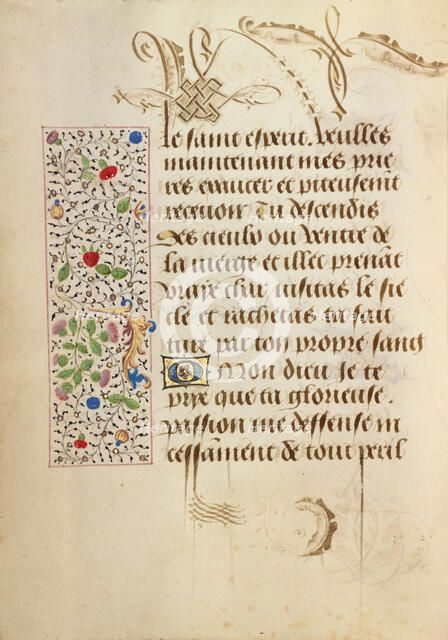 le saint esperit. Veulles
maintenant mes prie
res exaucer et piteusemt
recevoir Tu descendis
des cieulx ou ventre de
la vierge et illec prenāt
vraye char visitas le sie
cle et rachetas et fait
ture par ton propre sang
O Mon dieu Je te
prye que ta glorieuse
passion me deffense in
cessāment de tout peril